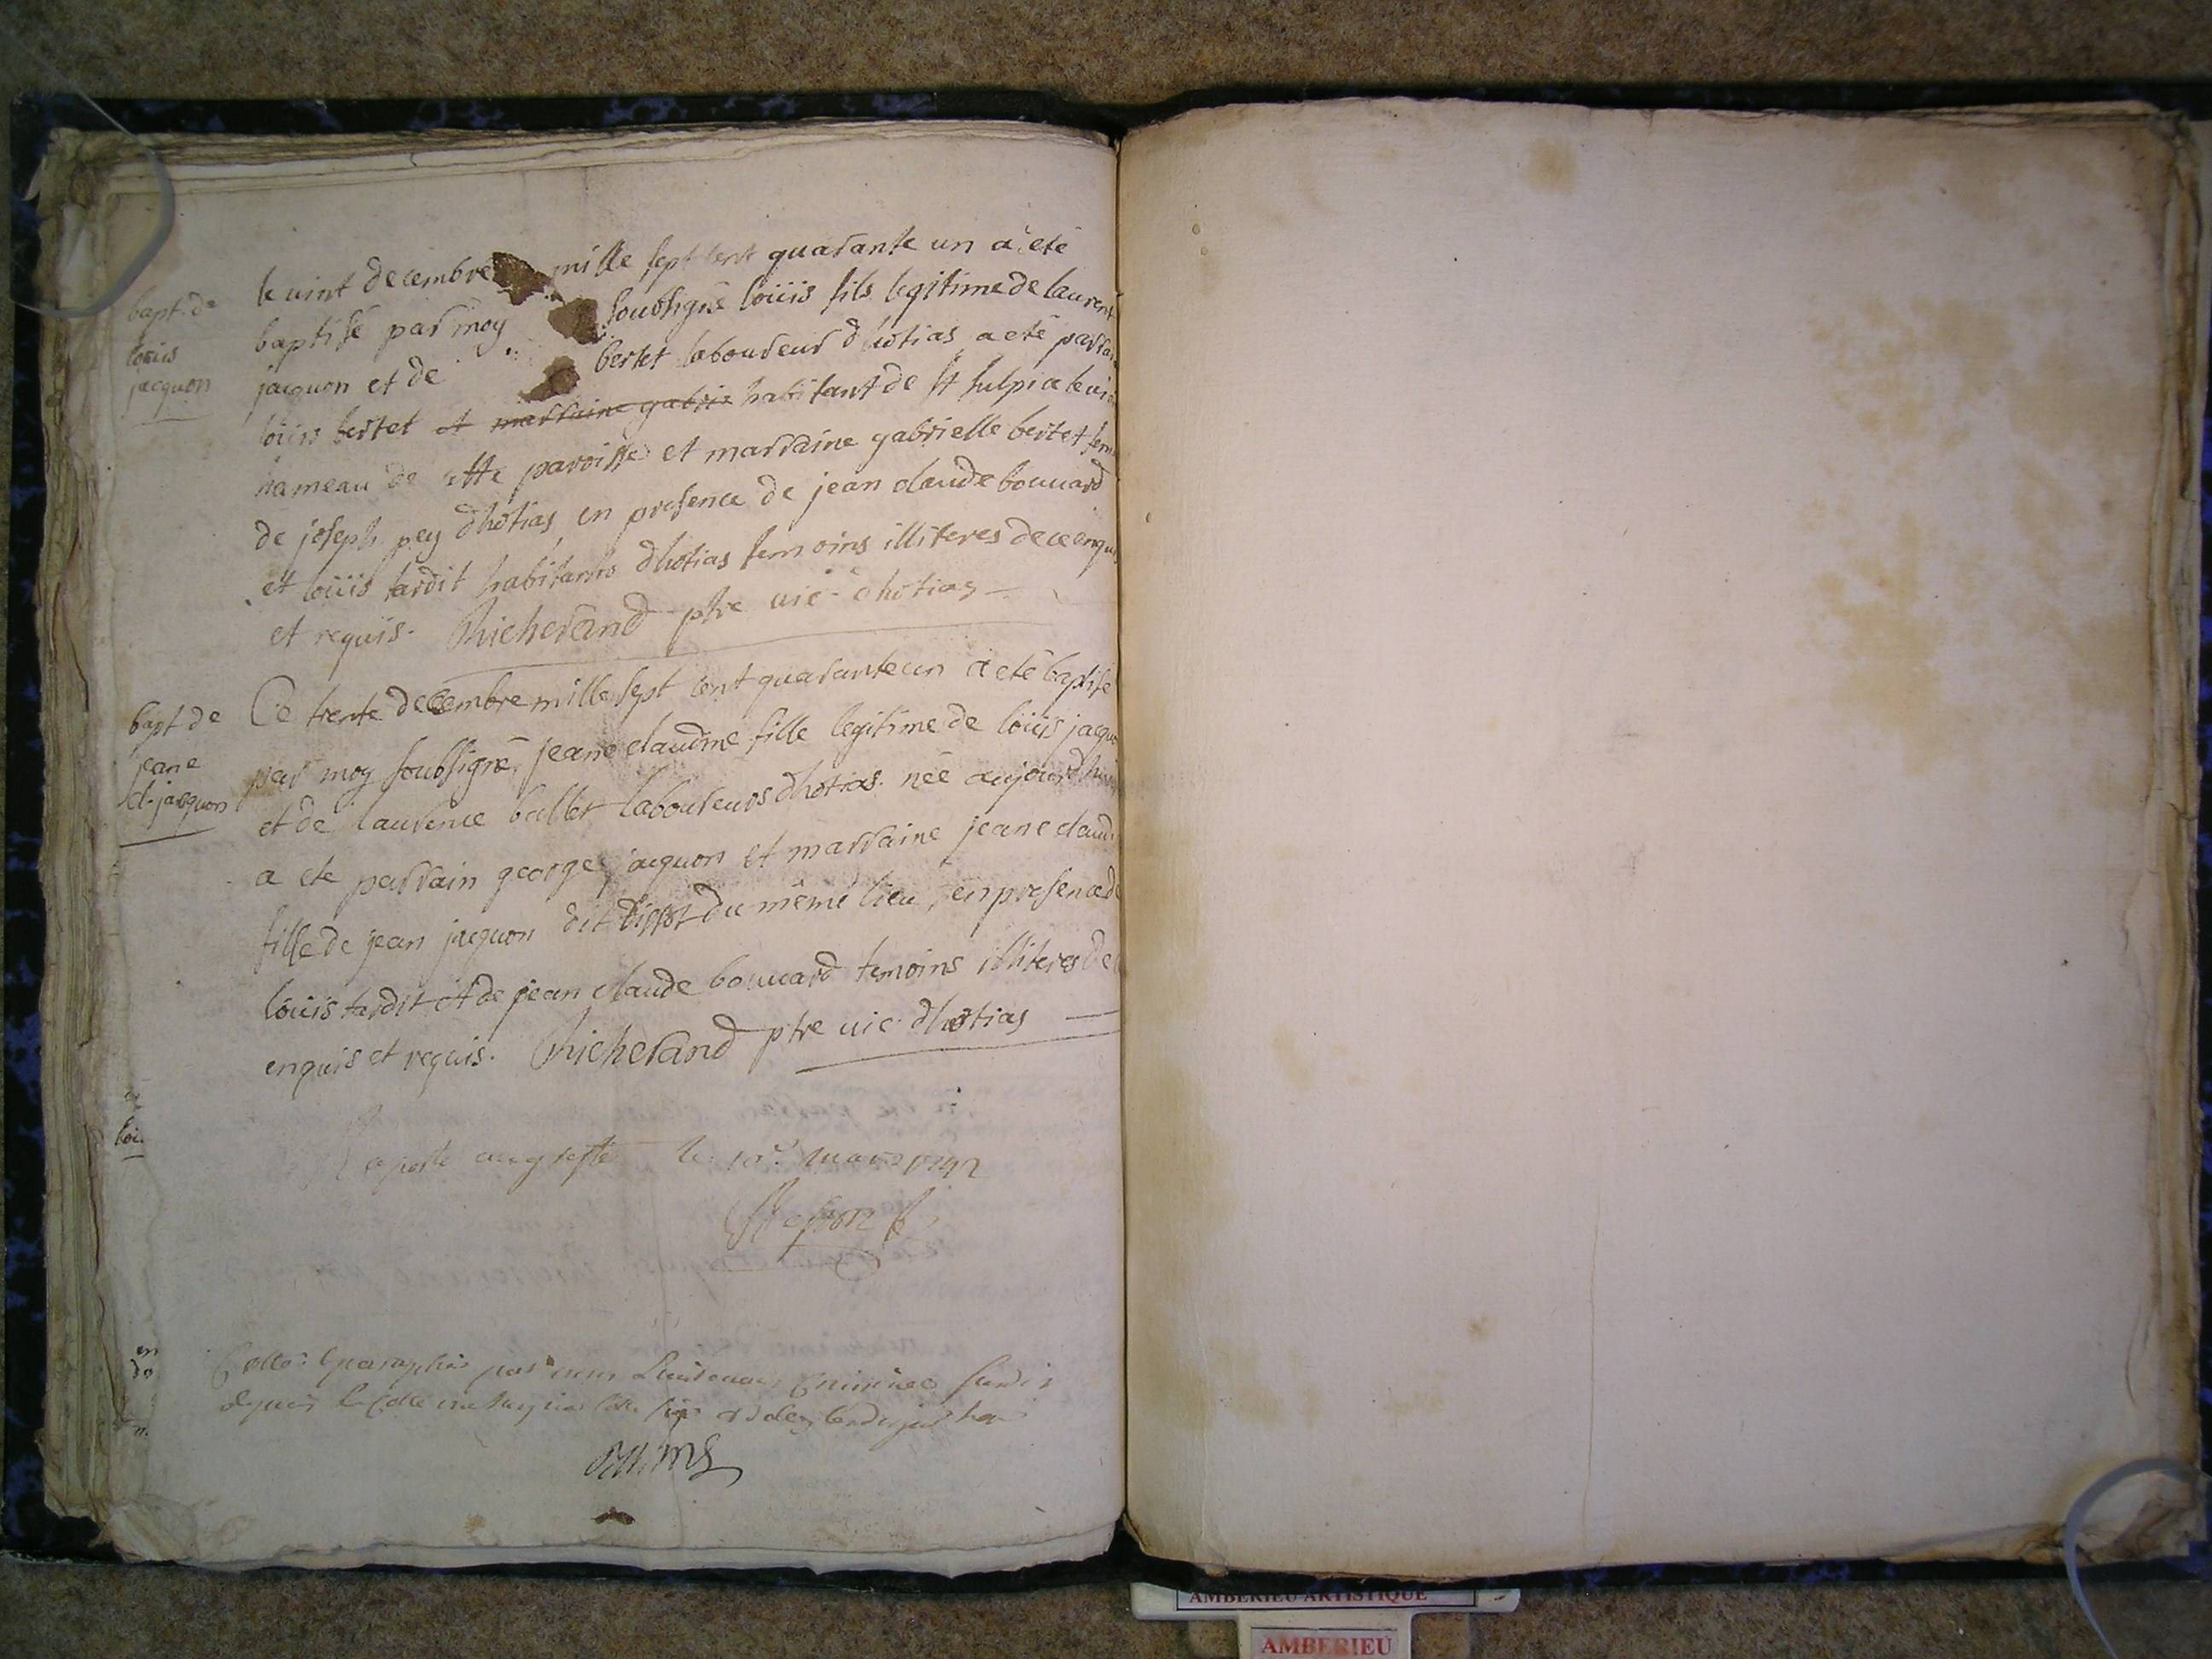 bapt. de
loüis
jacquon
le vint decembre mille sept cent quarante un a été
baptisé par moy soubsigné loüis fils legitime de laurent
jacquon et de bertet laboureur d'hotias a eté parrain
loüis bertet et marraine gabrie habitant de st sulpice le vi
hameau de cette paroisse et marraine gabrielle bertet fem
de joseph pey d'hotias, en presence de jean claude bouvard
et loüis tardit habitants d'hotias temoins illiteres de ce enquis
et requis. Richerand ptre vic. d'hotias
bapt de
jeane
cl. jacquon
Ce trente decembre mille sept cent quarante un a été baptisé
par moy soubsigné, jeane claudine fille legitime de loüis jacquo
et de laurence ballet laboureurs d'hotias. née aujourd'hui
a eté parrain george jacquon et marraine jeane claud
fille de jean jacquon dit du même lieu, en presence de
loüis tardit et de jean claude bouvard temoins illiteres de
enquis et requis. Richerand ptre vic. d'hotias
loi.
aporté au greffe le 10e mars 1742
Cotté paraphé par nous Lieutenant
depuis
AMBERIEU ARTISTIQUE
AMBERIEU